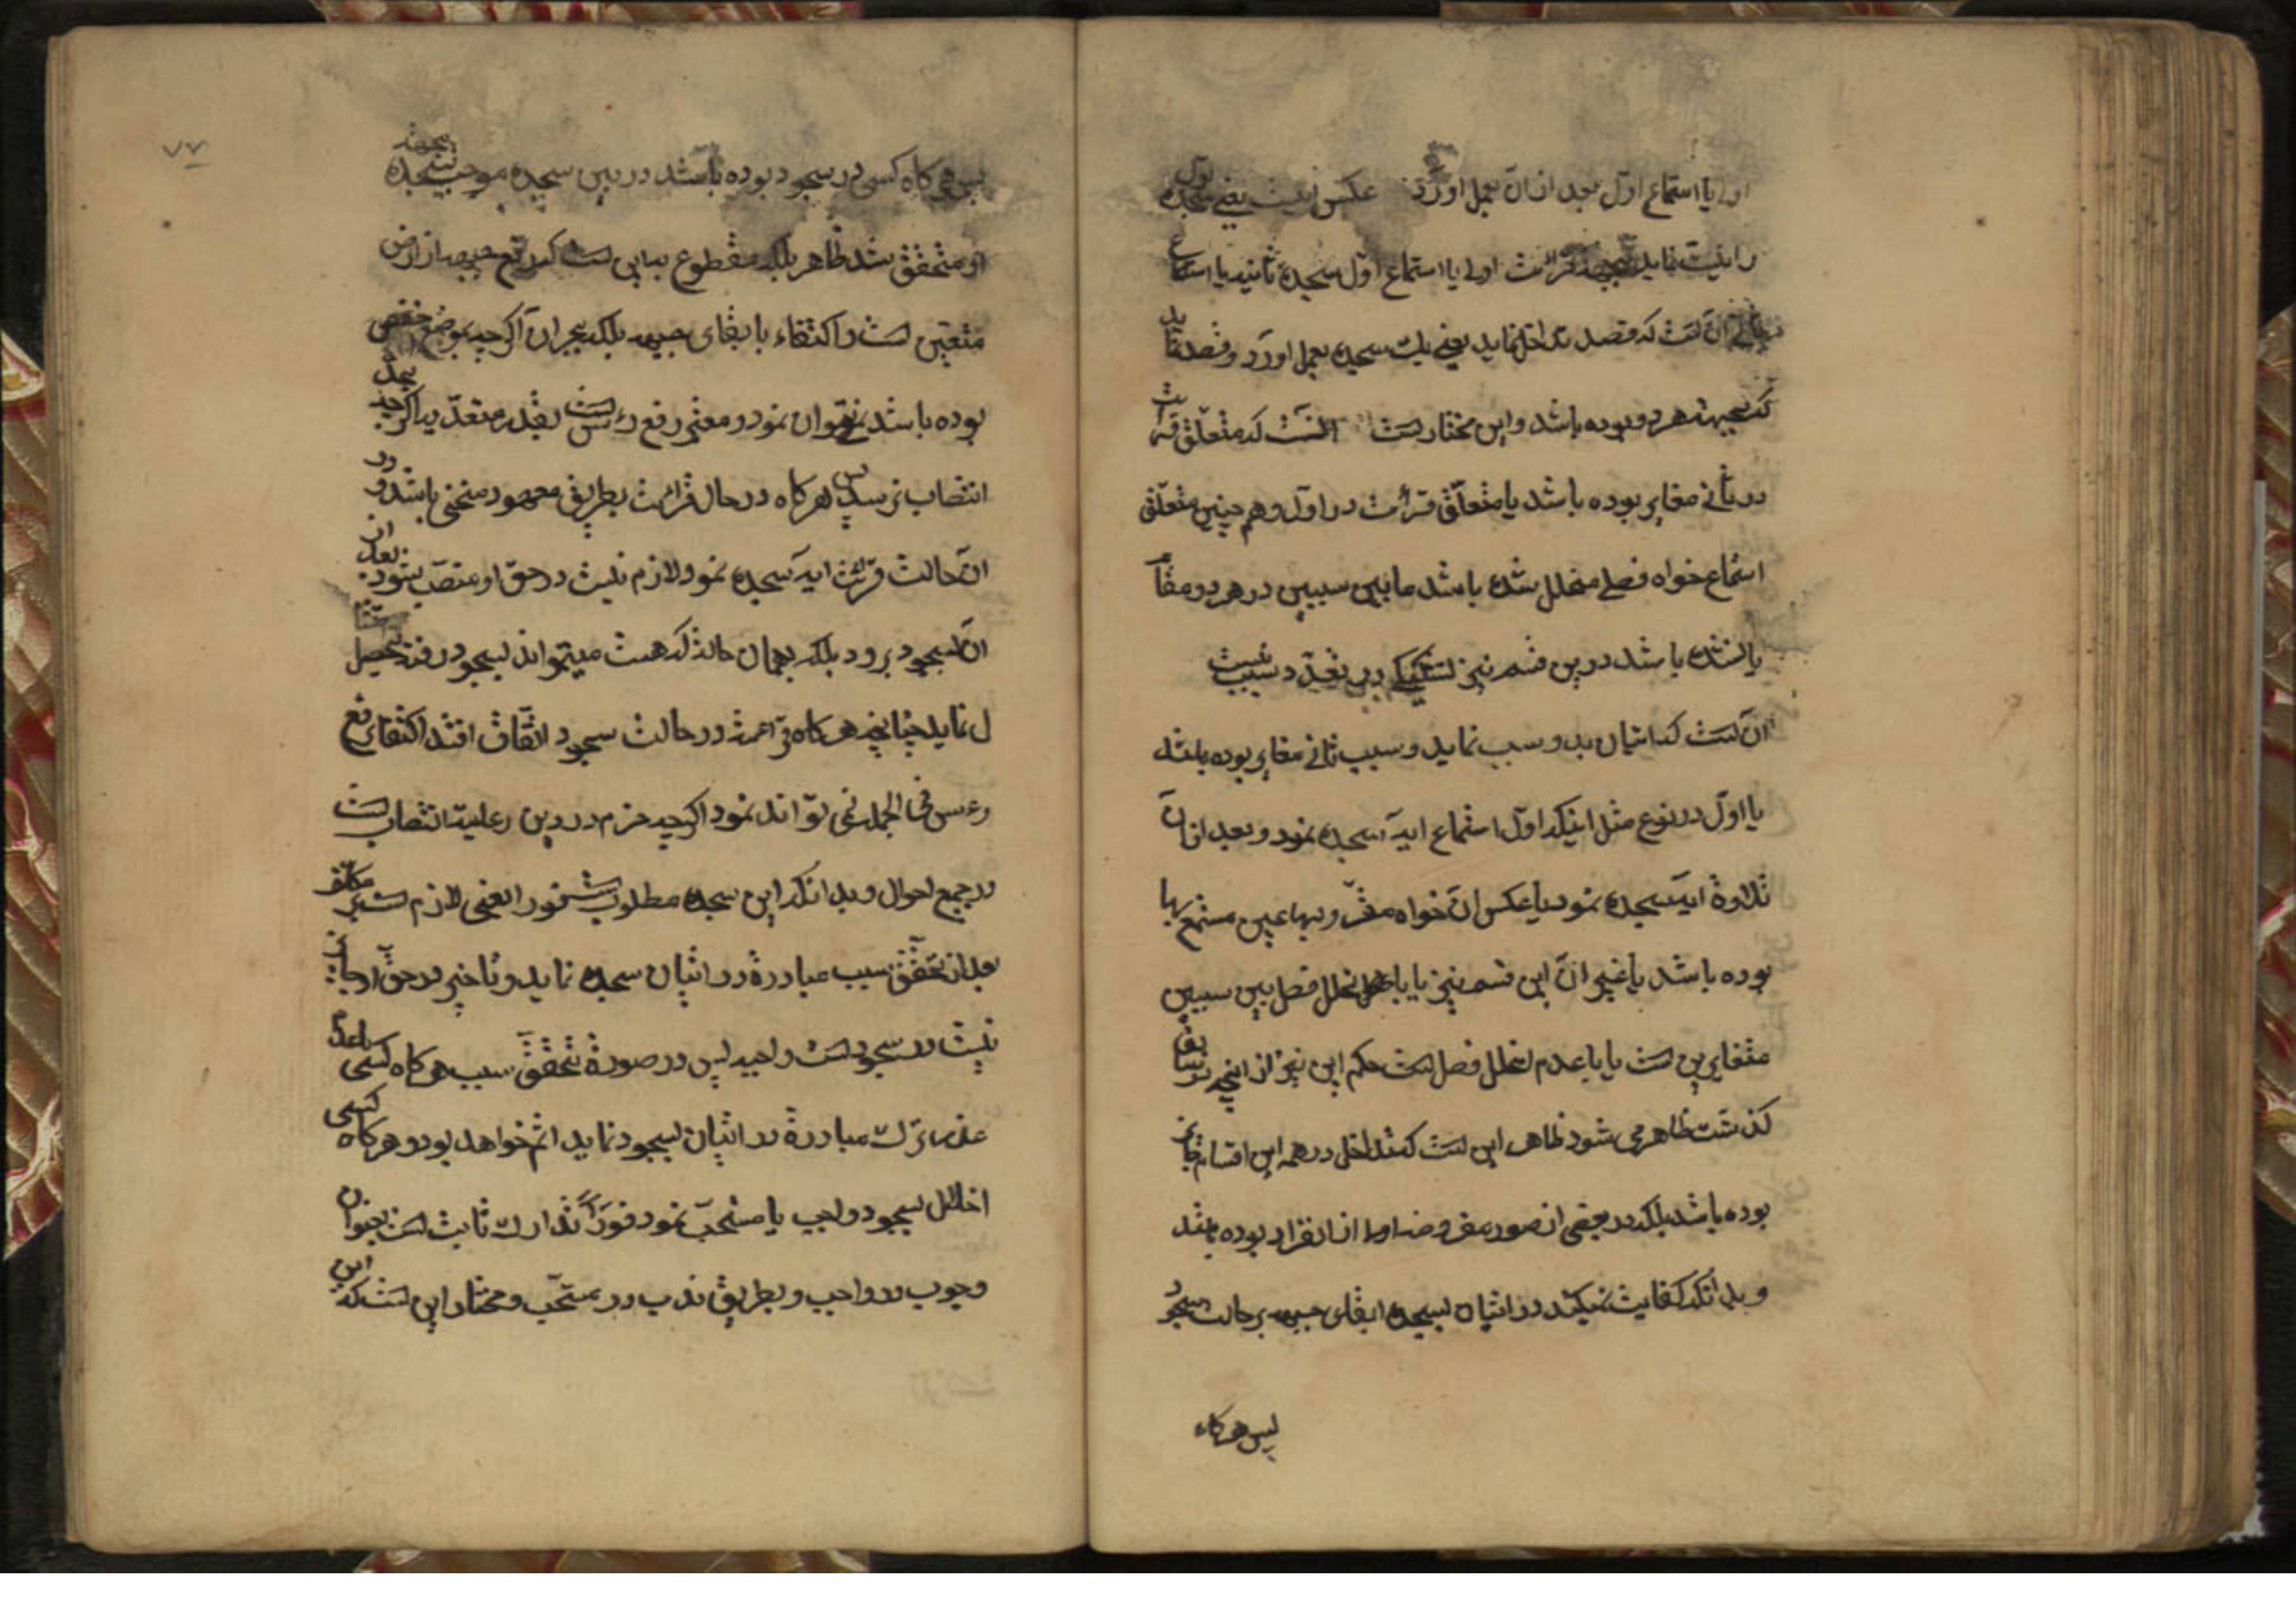 اولی یا استماع اول بعد از ان بعمل اورد عکس نیت یعنی سجده اول
را نیت نماید بجهة قرائت اولی یا استماع اول سجده ثانیه یا استماع
ثانی ان است که قصد تداخل نماید یعنی یک سجده بعمل اورد و قصد نماید
که بجهت هر دو بوده باشد و این مختار است انست که متعلق قرائت
در ثانی مغایر بوده باشد یا متعلق قرأت در اول و هم چنین متعلق
استماع خواه فصلی متخلل شده باشد ما بین سببین در هر دو مقام
یا نشده باشد درین قسم نیز تشکیک در تعدد سبب نیست
ان است که اتیان بدو سبب نماید و سبب ثانی مغایر بوده باشد
با اول در نوع مثل اینکه اول استماع ایه سجده نمود و بعد از ان
تلاوة ایه سجده نمود یا عکس ان خواه مقرو بها عین مستمع بها
بوده باشد یا غیر ان این قسم نیز یا با تخلل فصل بین سببین
متغایرین است یا با عدم تخلل فصل است حکم این نیز از انچه در سابق
گذشت ظاهر می شود ظاهر این است که تداخل در همه این اقسام جایز
بوده باشد بلکه در بعضی از صور مفروضه احوط از انفراد بوده باشد
و بدانکه کفایت نمیکند در اتیان بسجده ابقای جبهه بر حالت سجود
پس هرگاه
۷۷
پس هرگاه کسی در سجود بوده باشد در بین سجده موجب سجده بجهة
او متحقق شد ظاهر بلکه مقطوع به این است که رفع جبهه از ارض
متعین است و اکتفاء بابقای جبهه بلکه بجر ان اگر چه بموضع اخفض
بوده باشد نمیتوان نمود و معتبر رفع رئس است بقدر معتد به اگرچه بحد
انتصاب نرسد پس هرگاه در حال قرائت بطریق معهود منحنی باشد و در
ان حالت قرائت ایه سجده نمود لازم نیست در حق او منتصب بشود بعد از
ان بسجود برود بلکه بهمان حالة که هست میتواند بسجود رفت تحصیل
ل نماید چنانچه هرگاه قرائت در حالت سجود اتفاق افتد اکتفای رفع
رءس فی الجمله می تواند نمود اگرچه حزم در دین رعایت انتصاب است
در جمیع احوال و بدانکه این سجده مطلوب است فورا یعنی لازم است بر مکلف
بعد از تحقق سبب مبادرة در اتیان سجده نماید و تاخیر در حق او جایز
نیست در سجودات واجبه پس در صورة تحقق سبب هرگاه کسی با عدم
عذر ترک مبادرة در اتیان بسجود نماید اثم خواهد بود و هرگاه کسی
اخلال بسجود واجب یا مستحب نمود فورا تدارک ثابت است بعنوان
وجوب در واجب و بطریق ندب در مستحب و مختار این است که این